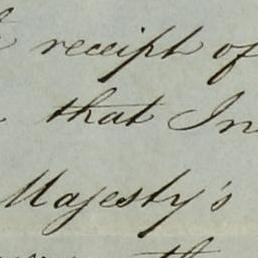 receipt of
that In
Majesty's
th